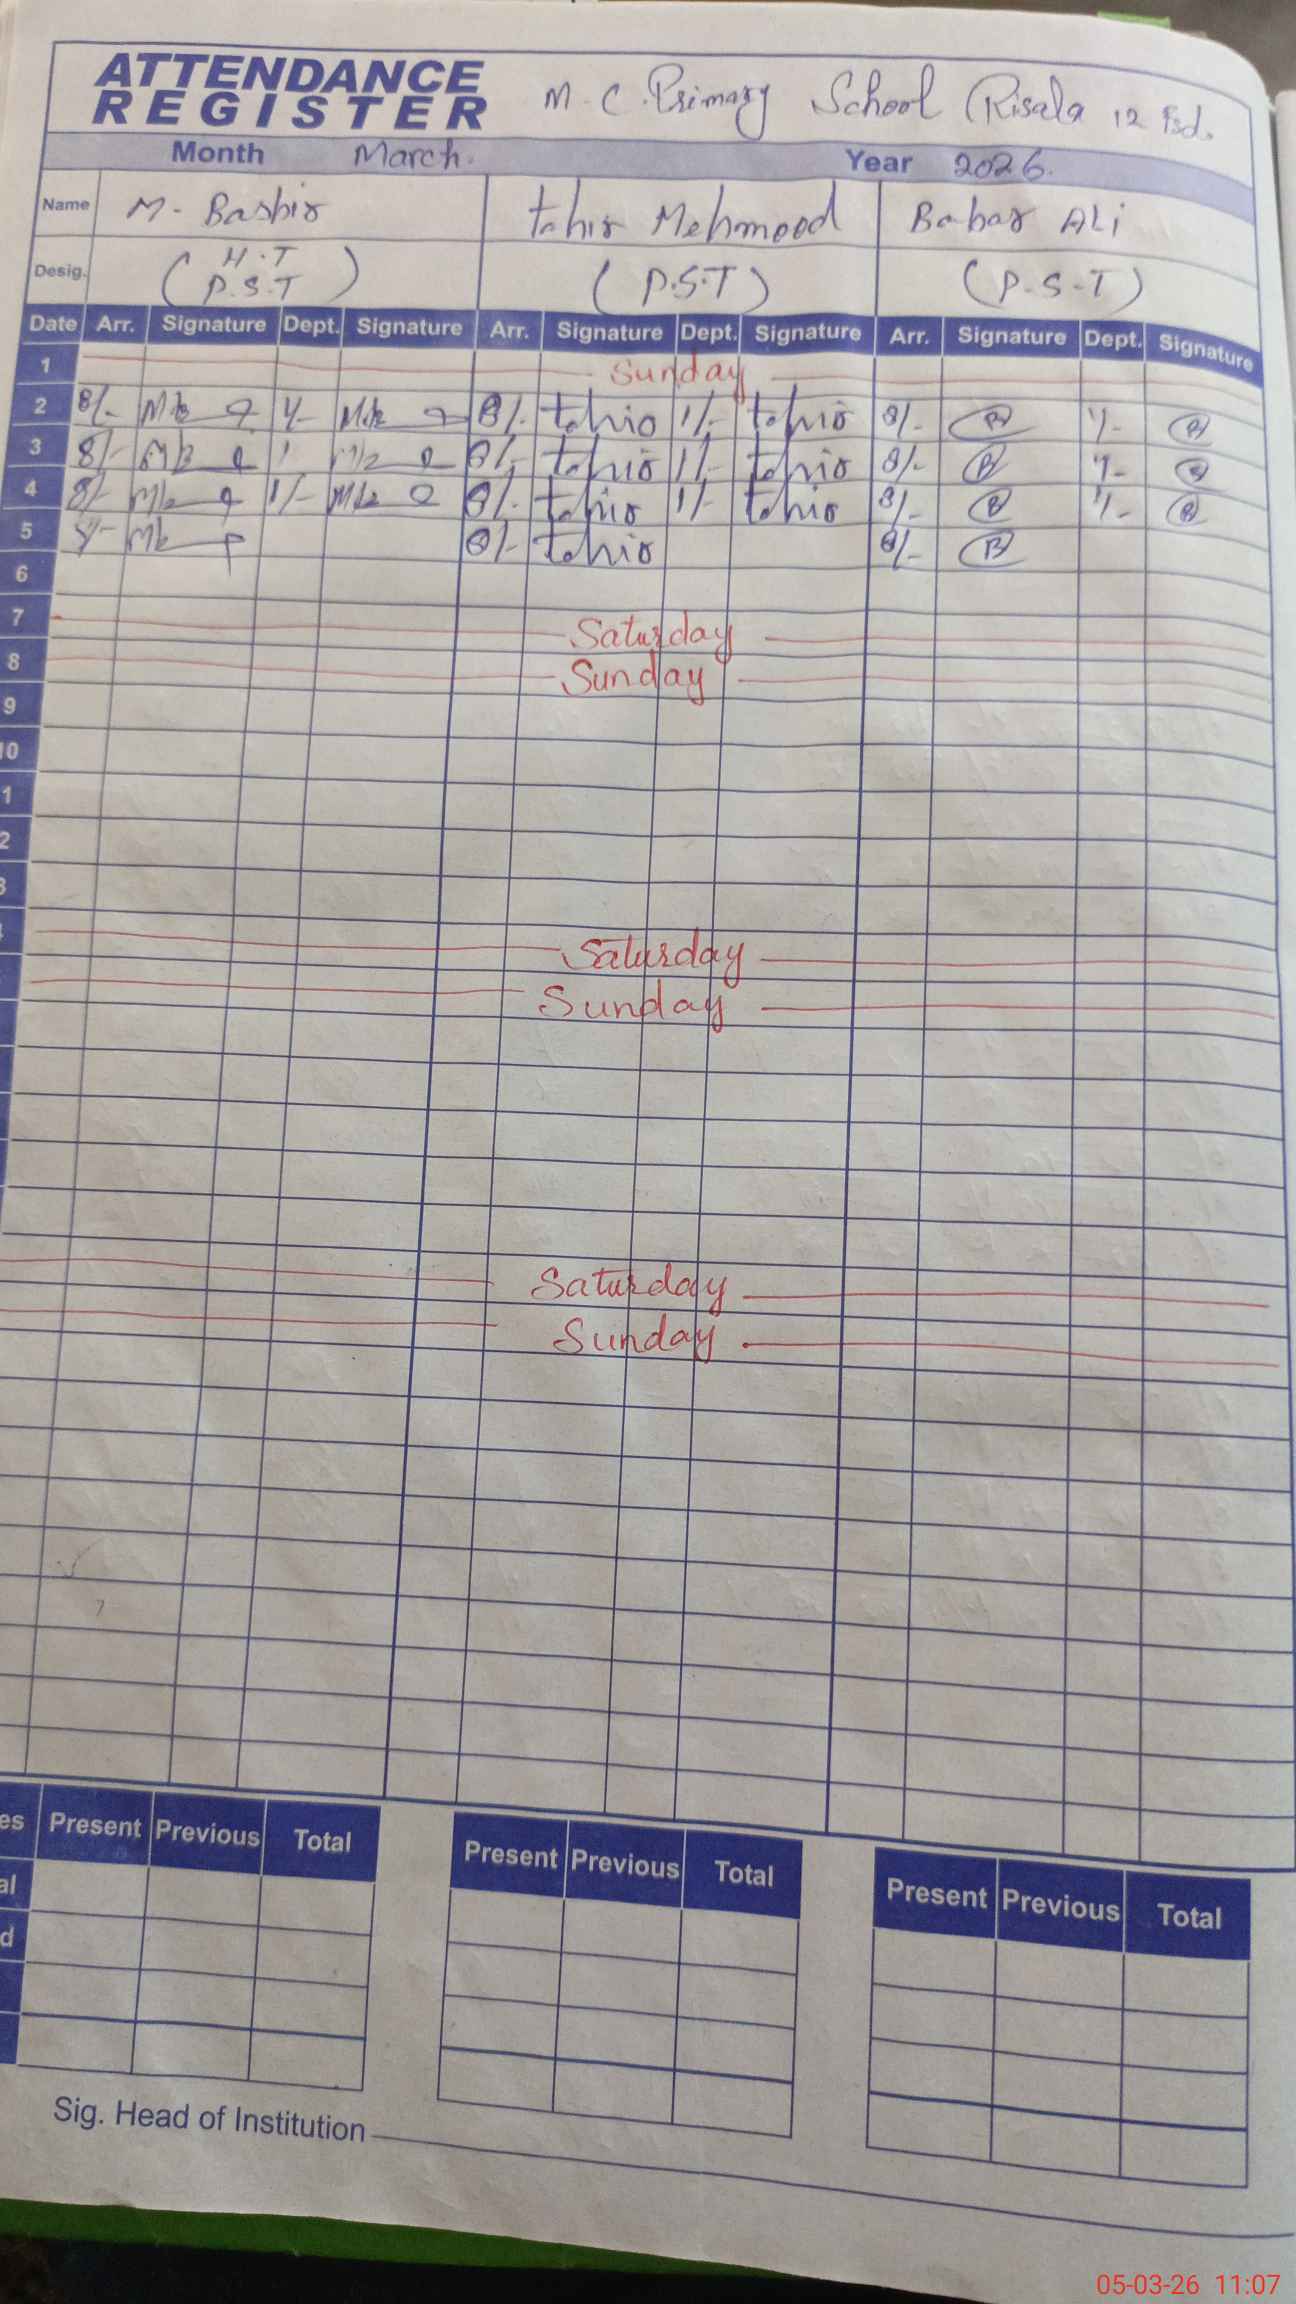 ATTENDANCE REGISTER M.C. Primary School Risala 12 Fsd.
Month March. Year 2026.
Name M. Bashir Tahir Mehmood Babar ALi
Desig. (H.T P.S.T) (P.S.T) (P.S.T)
Date Arr. Signature Dept. Signature Arr. Signature Dept. Signature Arr. Signature Dept. Signature
1 Sunday
2 8/- 1/- 8/- tahir 1/- tahir 8/- B 1/- B
3 8/- 8/- tahir 1/- tahir 8/- B 1/- B
4 8/- 1/- 8/- tahir 1/- tahir 8/- B 1/- B
5 8/- tahir 8/- B
6
7 Saturday
8 Sunday
9
10
1
2
3
Saturday
Sunday
Saturday
Sunday
es Present Previous Total Present Previous Total Present Previous Total
al
d
Sig. Head of Institution
05-03-26 11:07